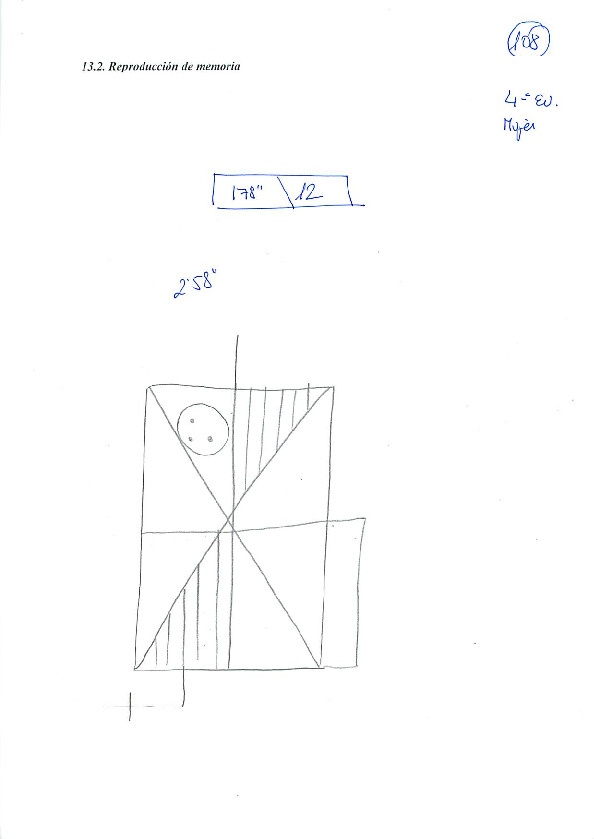 108
13.2. Reproducción de memoria
4ª Ev.
Mujer
178" \ 12
2'58"